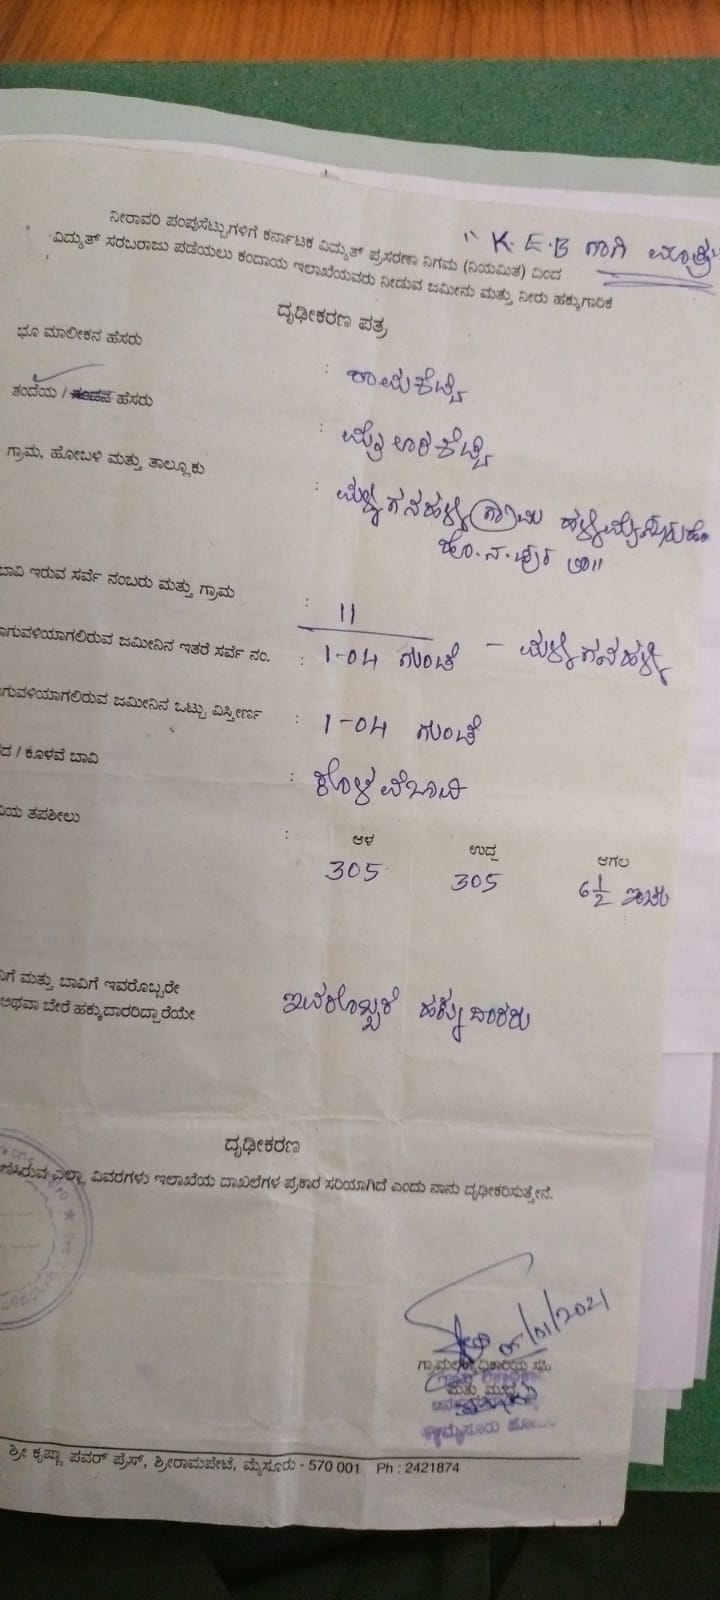 " K.E.B ಗಾಗಿ ಮಾತ್ರ "
ನೀರಾವರಿ ಪಂಪುಸೆಟ್ಟುಗಳಿಗೆ ಕರ್ನಾಟಕ ವಿದ್ಯುತ್ ಪ್ರಸರಣಾ ನಿಗಮ (ನಿಯಮಿತ) ದಿಂದ
ವಿದ್ಯುತ್ ಸರಬರಾಜು ಪಡೆಯಲು ಕಂದಾಯ ಇಲಾಖೆಯವರು ನೀಡುವ ಜಮೀನು ಮತ್ತು ನೀರು ಹಕ್ಕುಗಾರಿಕ
ದೃಢೀಕರಣ ಪತ್ರ
ಭೂ ಮಾಲೀಕನ ಹೆಸರು : ರಾಮಶೆಟ್ಟಿ
ತಂದೆಯ / ಗಂಡನ ಹೆಸರು :
ಗ್ರಾಮ, ಹೋಬಳಿ ಮತ್ತು ತಾಲ್ಲೂಕು : ಗ್ರಾಮ
ಬಾವಿ ಇರುವ ಸರ್ವೆ ನಂಬರು ಮತ್ತು ಗ್ರಾಮ : 11
ಾಗುವಳಿಯಾಗಲಿರುವ ಜಮೀನಿನ ಇತರೆ ಸರ್ವೆ ನಂ. : 1-04 ಗುಂಟೆ –
ಾಗುವಳಿಯಾಗಲಿರುವ ಜಮೀನಿನ ಒಟ್ಟು ವಿಸ್ತೀರ್ಣ : 1-04 ಗುಂಟೆ
ದ / ಕೊಳವೆ ಬಾವಿ : ಕೊಳವೆಬಾವಿ
ವಿಯ ತಪಶೀಲು :
ಆಳ ಉದ್ದ ಅಗಲ
305 305 6 1/2 ಇಂಚು
ನಿಗೆ ಮತ್ತು ಬಾವಿಗೆ ಇವರೊಬ್ಬರೇ
ಅಥವಾ ಬೇರೆ ಹಕ್ಕುದಾರರಿದ್ದಾರೆಯೇ ಇವರೊಬ್ಬರೆ ಹಕ್ಕುದಾರರು
ದೃಢೀಕರಣ
ಣಿಸಿರುವ ಎಲ್ಲಾ ವಿವರಗಳು ಇಲಾಖೆಯ ದಾಖಲೆಗಳ ಪ್ರಕಾರ ಸರಿಯಾಗಿದೆ ಎಂದು ನಾನು ದೃಢೀಕರಿಸುತ್ತೇನೆ.
/01/2021
ಗ್ರಾಮಲೆಕ್ಕಾಧಿಕಾರಿಯ ಸಹಿ
ಮತ್ತು ಮುದ್ರೆ
ಶ್ರೀ ಕೃಷ್ಣಾ ಪವರ್ ಪ್ರೆಸ್, ಶ್ರೀರಾಮಪೇಟೆ, ಮೈಸೂರು - 570 001 Ph : 2421874